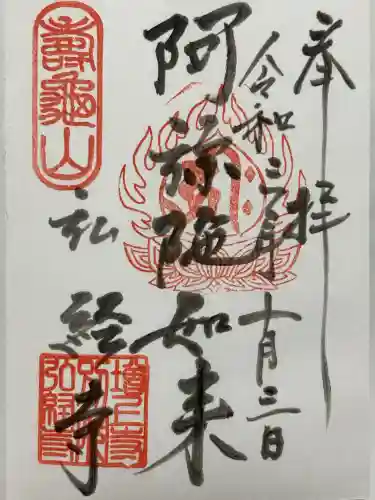 奉拝
令和三年十月三日
阿弥陀如来
壽龜山
弘経寺